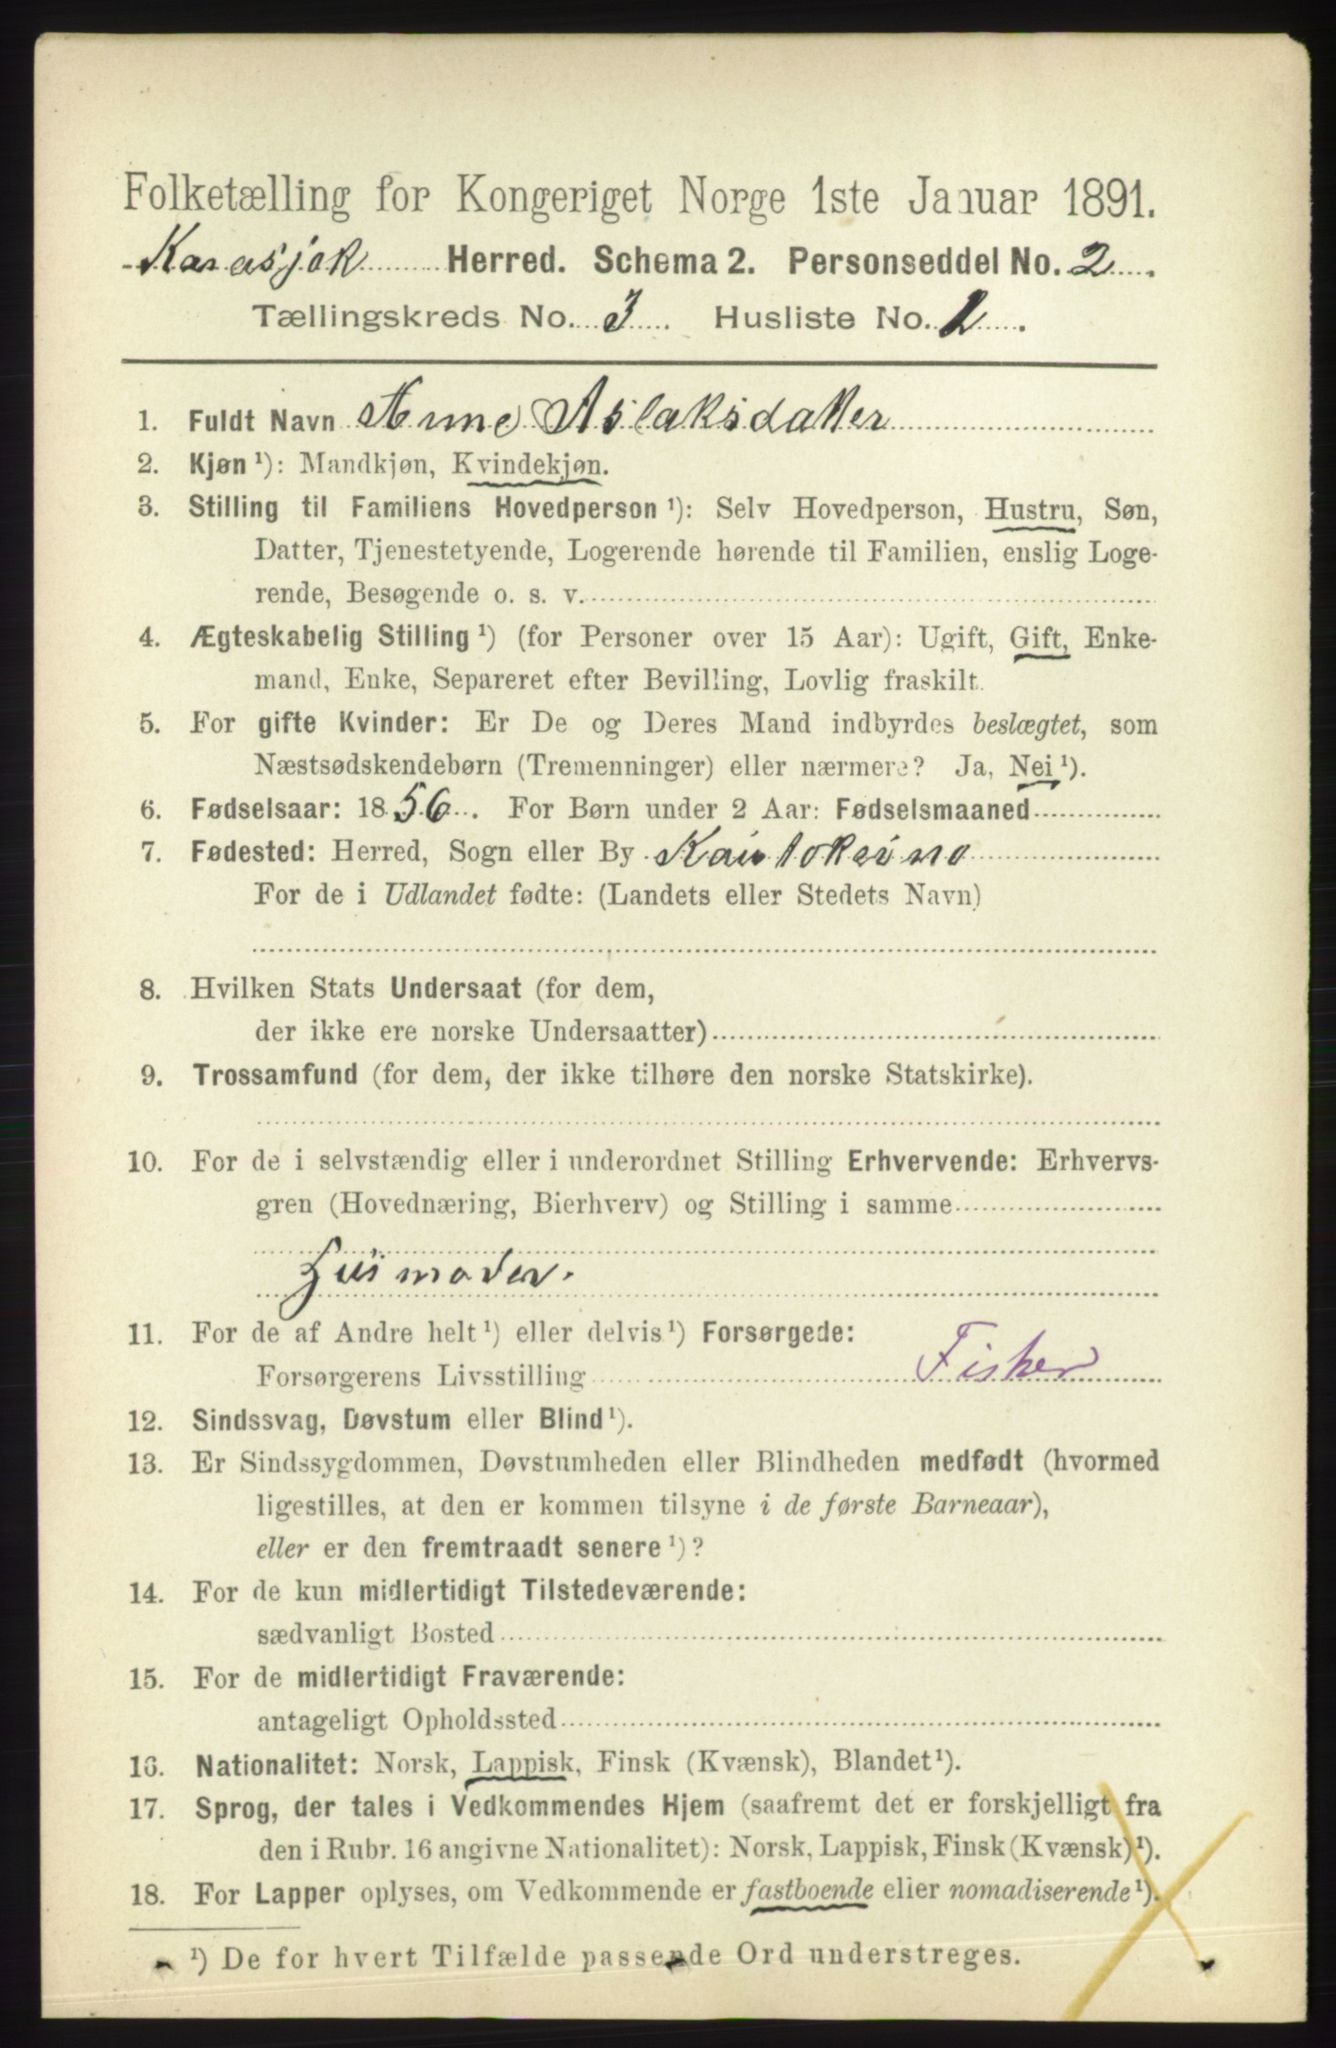 Folketælling for Kongeriget Norge 1ste Januar 1891.
Karasjok Herred. Schema 2. Personseddel No. 2.
Tællingskreds No. 3. Husliste No. 2.
1. Fuldt Navn Anne Aslaksdatter
2. Kjøn ¹): Mandkjøn, Kvindekjøn.
3. Stilling til Familiens Hovedperson ¹): Selv Hovedperson, Hustru, Søn,
Datter, Tjenestetyende, Logerende hørende til Familien, enslig Loge-
rende, Besøgende o. s. v.
4. Ægteskabelig Stilling ¹) (for Personer over 15 Aar): Ugift, Gift, Enke-
mand, Enke, Separeret efter Bevilling, Lovlig fraskilt.
5. For gifte Kvinder: Er De og Deres Mand indbyrdes beslægtet, som
Næstsødskendebørn (Tremenninger) eller nærmere? Ja, Nei ¹).
6. Fødselsaar: 1856. For Børn under 2 Aar: Fødselsmaaned
7. Fødested: Herred, Sogn eller By Kautokeino
For de i Udlandet fødte: (Landets eller Stedets Navn)
8. Hvilken Stats Undersaat (for dem,
der ikke ere norske Undersaatter)
9. Trossamfund (for dem, der ikke tilhøre den norske Statskirke).
10. For de i selvstændig eller i underordnet Stilling Erhvervende: Erhvervs-
gren (Hovednæring, Bierhverv) og Stilling i samme
Husmoder.
11. For de af Andre helt ¹) eller delvis ¹) Forsørgede:
Forsørgerens Livsstilling Fisker
12. Sindssvag, Døvstum eller Blind ¹).
13. Er Sindssygdommen, Døvstumheden eller Blindheden medfødt (hvormed
ligestilles, at den er kommen tilsyne i de første Barneaar),
eller er den fremtraadt senere ¹)?
14. For de kun midlertidigt Tilstedeværende:
sædvanligt Bosted
15. For de midlertidigt Fraværende:
antageligt Opholdssted
16. Nationalitet: Norsk, Lappisk, Finsk (Kvænsk), Blandet ¹).
17. Sprog, der tales i Vedkommendes Hjem (saafremt det er forskjelligt fra
den i Rubr. 16 angivne Nationalitet): Norsk, Lappisk, Finsk (Kvænsk) ¹).
18. For Lapper oplyses, om Vedkommende er fastboende eller nomadiserende ¹).
¹) De for hvert Tilfælde passende Ord understreges.